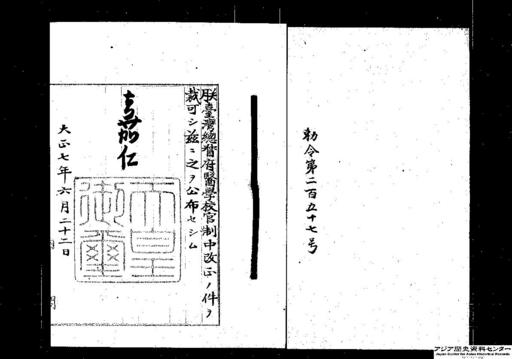 勅令第二百五十七号
朕臺灣總督府醫學校官制中改正ノ件ヲ
裁可シ茲ニ之ヲ公布セシム
嘉仁
天皇
御璽
大正七年六月二十二日
アジア歴史資料センター
Japan Center for Asian Historical Records